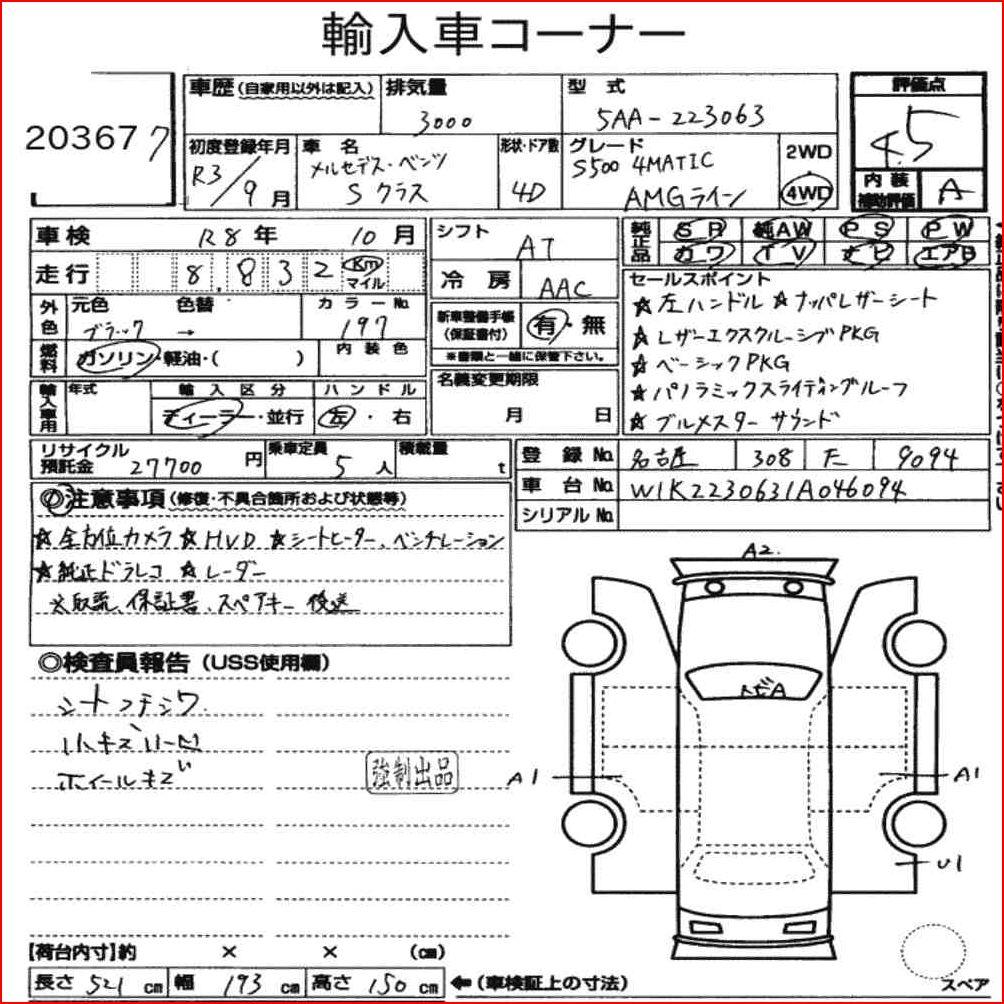 輸入車コーナー
20367 7
車歴(自家用以外は記入)
排気量
3000
型 式
5AA-223063
評価点
4.5
初度登録年月
R3/9月
車 名
メルセデス・ベンツ
Sクラス
形状・ドア数
4D
グレード
S500 4MATIC
AMGライン
2WD
4WD
内装
補助評価
A
車検 R8年 10月
走行 8.832 Km
マイル
外色
元色 色替 カラーNo
ブラック → 197
燃料
ガソリン・軽油・( )
内装色
輸入車用
年式
輸入区分 ハンドル
ディーラー・並行 左・右
シフト AT
冷房 AAC
新車整備手帳
(保証書付)
有・無
※書類と一緒に保管下さい。
名義変更期限
月 日
純正品
SR 純AW PS PW
カワ TV ナビ エアB
セールスポイント
☆左ハンドル ☆ナッパレザーシート
☆レザーエクスクルーシブPKG
☆ベーシックPKG
☆パノラミックスライディングルーフ
☆ブルメスターサウンド
リサイクル
預託金 27700 円
乗車定員 5人
積載量 t
登録No 名古屋 308 9094
車台No W1K2230631A046094
シリアルNo
◎注意事項(修復・不具合箇所および状態等)
☆全方位カメラ ☆HUD ☆シートヒーター、ベンチレーション
☆純正ドラレコ ☆レーダー
※取説、保証書、スペアキー 後送
◎検査員報告(USS使用欄)
シートコテシワ
小キズ小凹
ホイールキズ
強制出品
A2.
トビA
A1
A1
U1
【荷台内寸】約 × × (cm)
長さ 521 cm 幅 193 cm 高さ 150 cm
←(車検証上の寸法)
スペア